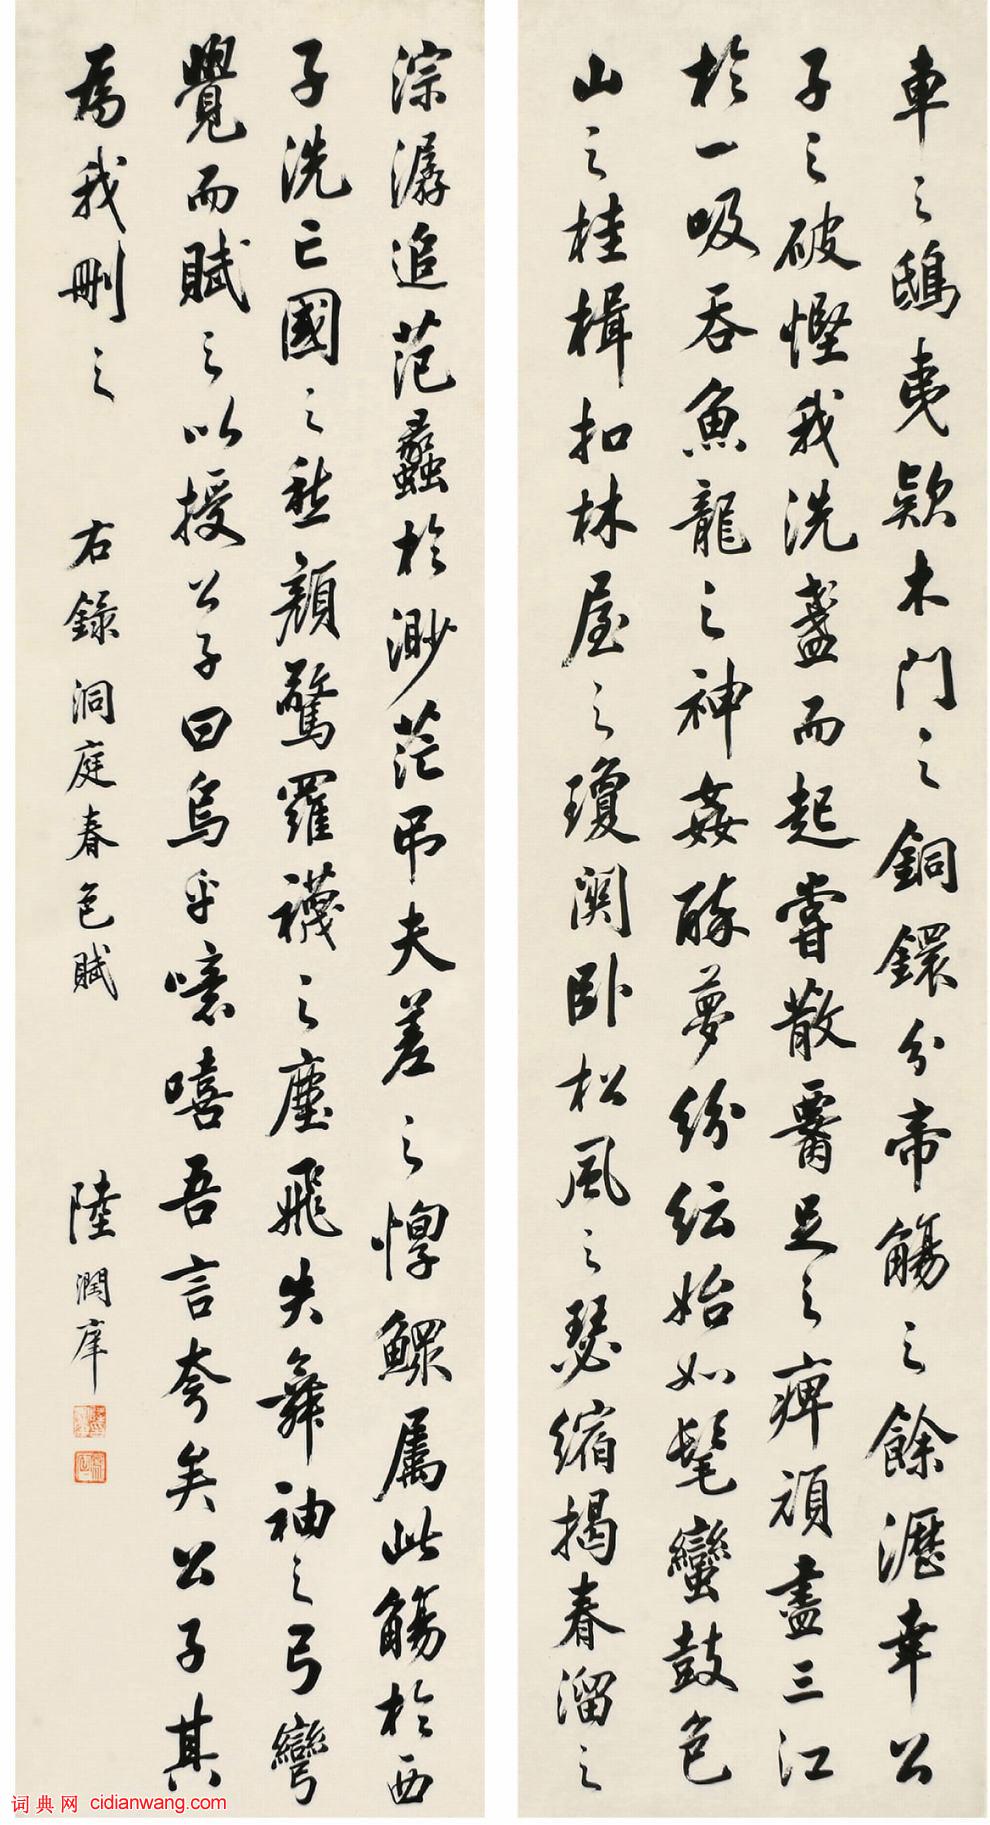 車之鴟夷款木門之銅鐶分帝觴之餘瀝幸公
子之破慳我洗盞而起嘗散腰足之痹頑盡三江
於一吸吞魚龍之神姦醉夢紛紜始如髦蠻鼓包
山之桂楫扣林屋之瓊關臥松風之瑟縮揭春溜之
淙潺追范蠡於渺茫弔夫差之惸鰥屬此觴於西
子洗亡國之愁顏驚羅襪之塵飛失舞袖之弓彎
覺而賦之以授公子曰烏乎噫嘻吾言夸矣公子其
為我刪之 右錄洞庭春色賦 陸潤庠
词典网 cidianwang.com